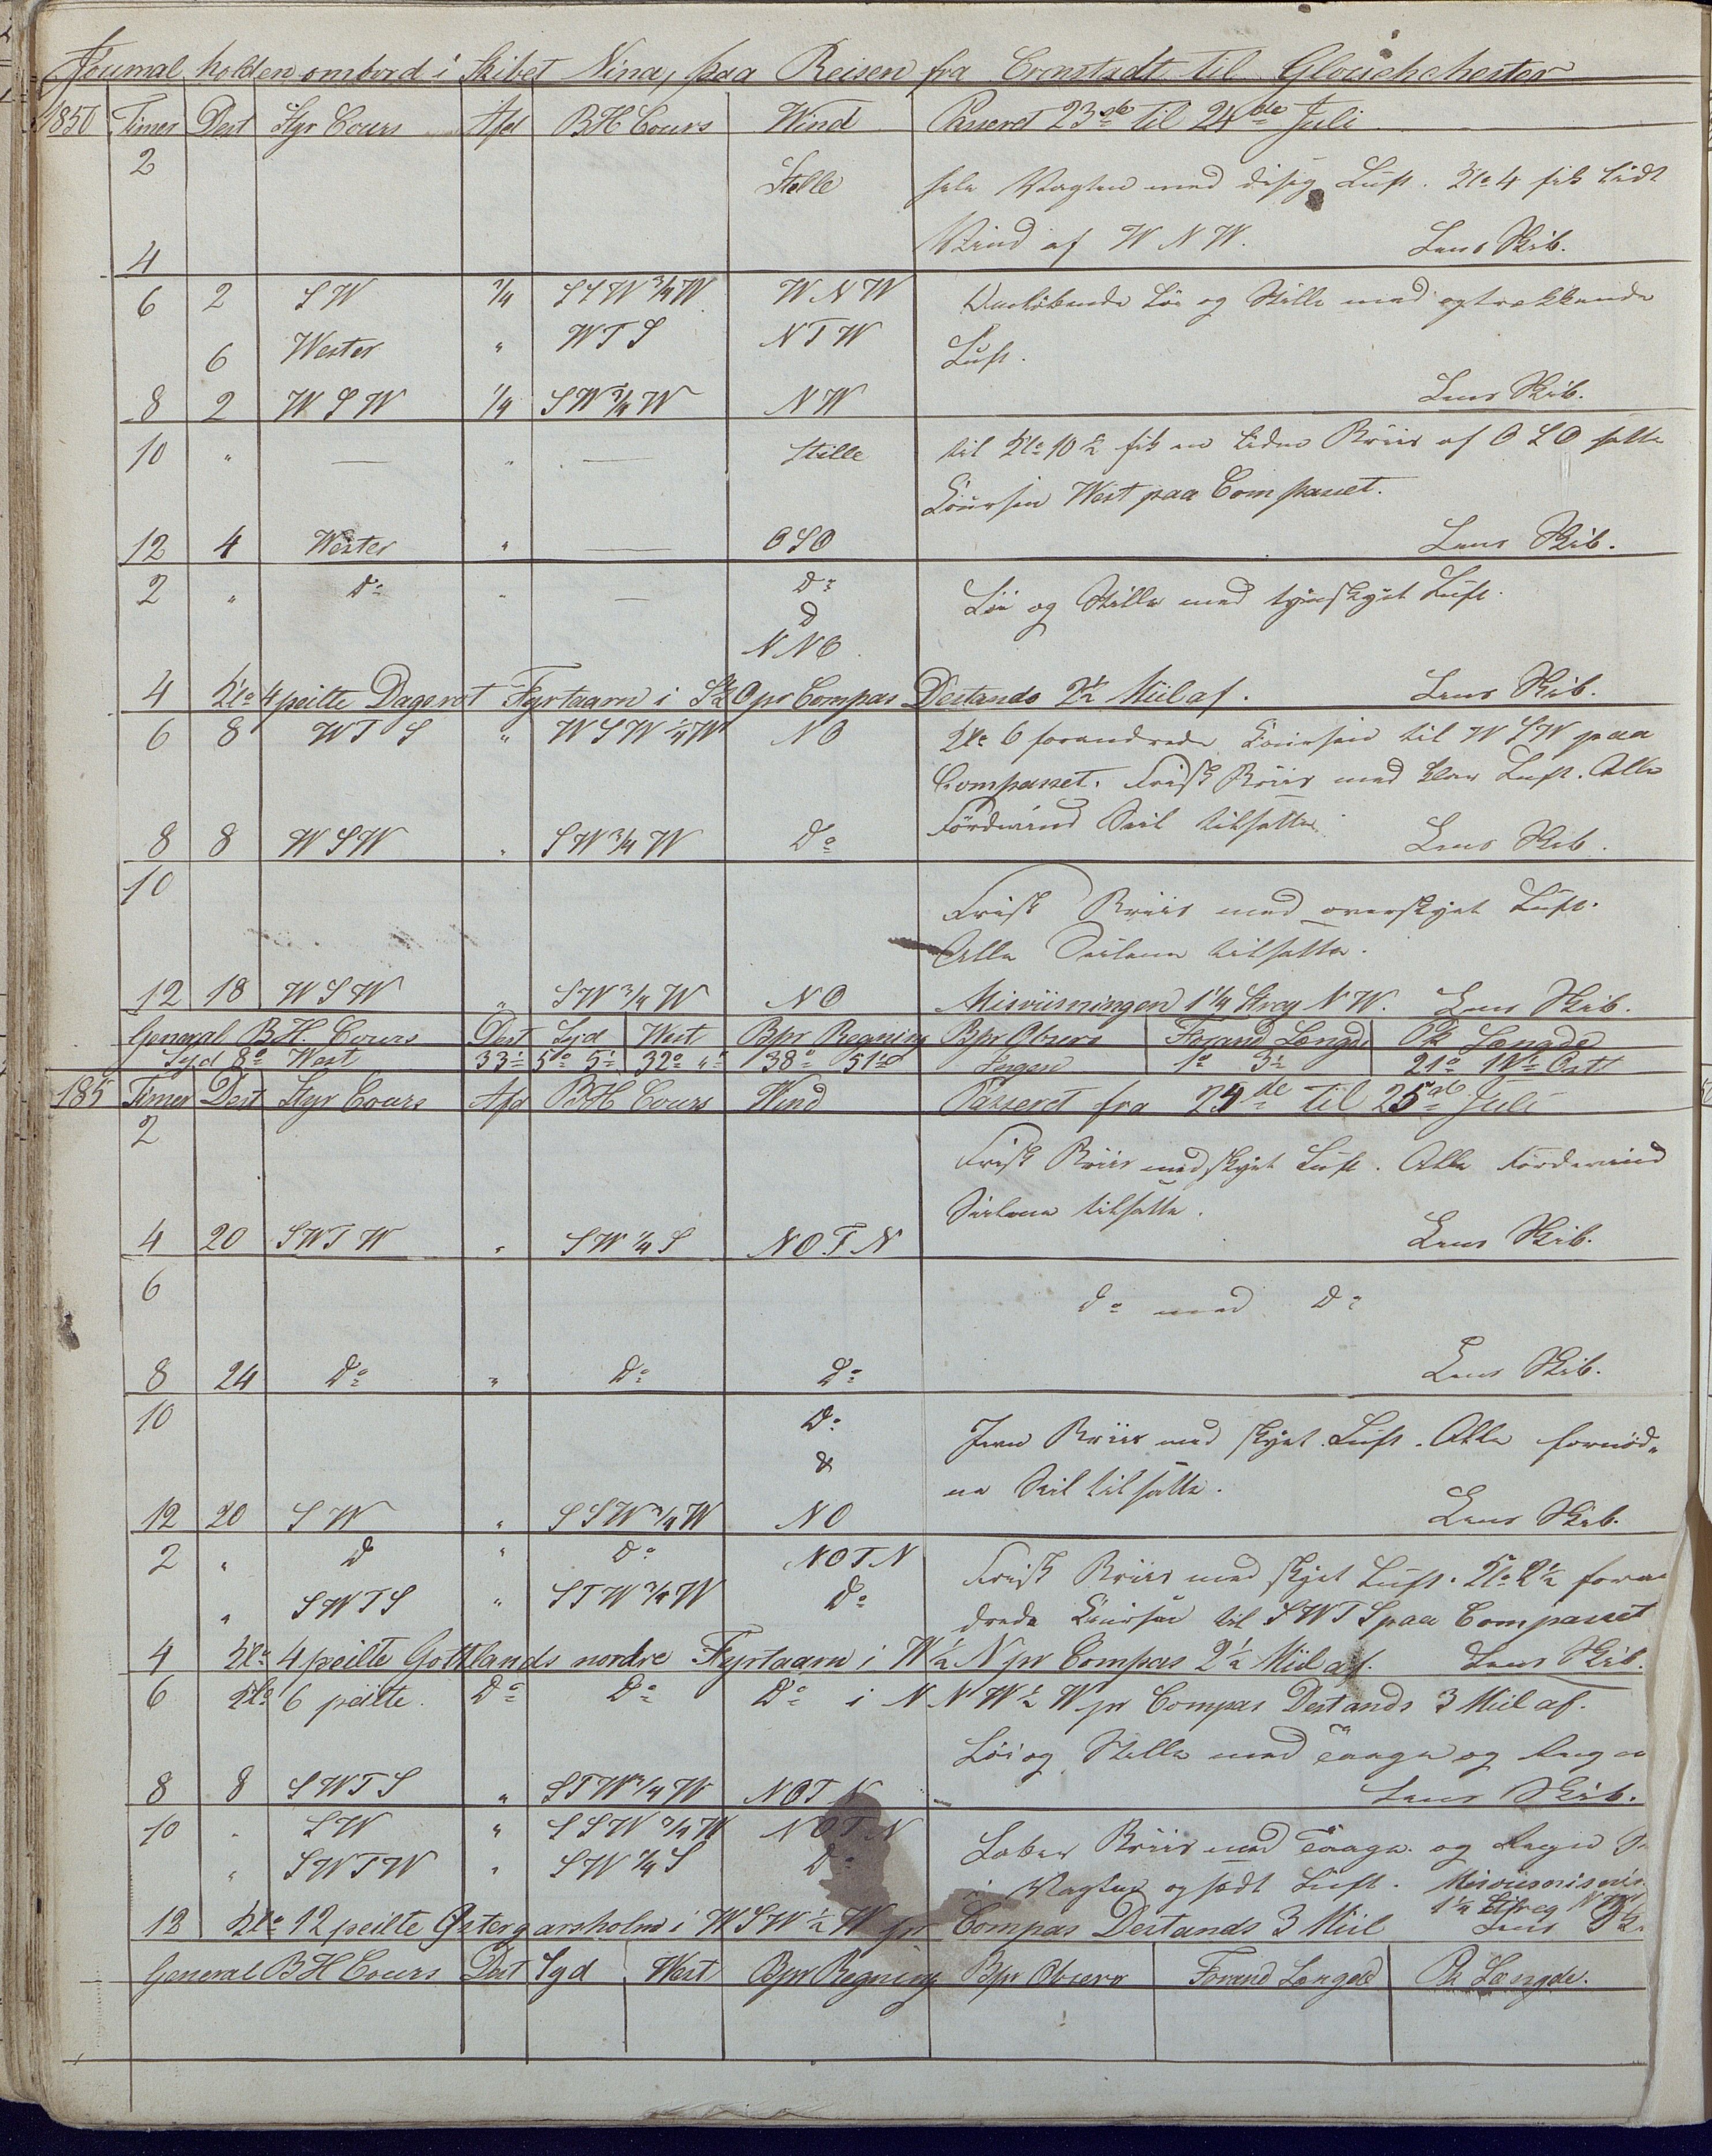 Journal holden ombord i Skibet Nina, paa Reisen fra Cronstadt til Glouchchester
1850 Timer Dest Styr Cours Afd BH Cours Wind Passeret 23de til 24de Juli
2 Stelle hele Vagten med disig Luft. Klo 4 fik lidt
4 Vind af W N W. Lens Skib.
6 2 S W 3/4 S S W 3/4 W W N W Omløbende Løi og Stille med optrækkende
6 Wester " W T S N T W Luft.
8 2 W S W 1/4 S W 3/4 W N W Lens Skib.
10 " — " — Stille til Klo 10 1/2 fik en liden Briis af O S O satte
Coursen West paa Compasset.
12 4 Wester " — O S O Lens Skib.
2 " Do " — Do Løi og Stille med tyndskyet Luft.
&
N N O.
4 Klo 4 peilte Dagerot Fyrtaarn i S 1/2 O pr Compas Destands 2 1/2 Miil af. Lens Skib.
6 8 W T S " W S W 1/4 W N O Klo 6 forandrede Coursen til W S W paa
Compasset. Frisk Briis med klar Luft. Alle
8 8 W S W " S W 3/4 W Do Fordevind Seil tilsatte. Lens Skib.
10 Frisk Briis med overskyet Luft.
Alle Seilene tilsatte.
12 18 W S W " S W 3/4 W N O Misviisningen 1 1/4 Streg N W. Lens Skib.
General B H. Cours Dest Syd West Bpr Regning Bpr Observ Forand Længde Pk Længde
Syd 8° West 33' 5° 5' 32° "' 38° 51' Ingen 1° 3'
185 Timer Dest Styr Cours Afd BH Cours Wind Passeret fra 24de til 25de Juli
2 Frisk Briis med skyet Luft. Alle Fordevind
Seilene tilsatte.
4 20 S W T W " S W 1/4 S N O T N Lens Skib.
6 do med Do
8 24 Do " Do Do Lens Skib.
10 Do Jevn Briis med skyet Luft. Alle fornød„
& ne Seil tilsatte.
12 20 S W " S S W 3/4 W N O Lens Skib.
2 " D " Do N O T N Frisk Briis med skyet Luft. Klo 2 1/2 foran
" S W T S " S T W 3/4 W Do drede Coursen til S W T S paa Compasset
4 Klo 4 peilte Gottlands nordre Fyrtaarn i W 1/2 N pr Compas 2 1/2 Miil af. Lens Skib.
6 Klo 6 peilte Do Do Do i N N W 1/2 W pr Compas Destands 3 Miil af.
Løi og Stille med Taage og Regn
8 8 S W T S " S T W 3/4 W N O T N Lens Skib.
10 " S W " S S W 3/4 W N O T N Laber Briis med Taage og Regn
" S W T W " S W 1/4 S Do i Vagten og sødt Luft. Misviisnin
1 1/4 Streg N W
12 Klo 12 peilte Østergarsholm i W S W 1/2 W pr Compas Destands 3 Miil Lens Sk
General B H Cours Dest Syd West Bpr Regning Bpr Observ Forand Længde Pk Længde.